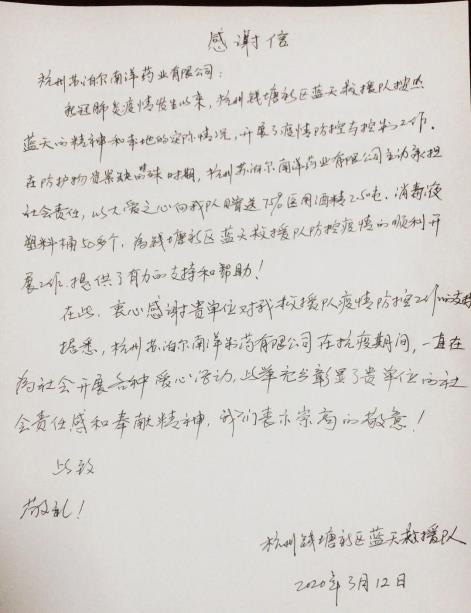 感谢信
杭州苏泊尔南洋药业有限公司：
我冠肺炎疫情发生以来，杭州钱塘新区蓝天救援队按照
蓝天的精神和本地的实际情况，开展了疫情防控与控制工作．
在防护物资紧缺的特殊时期，杭州苏泊尔南洋药业有限公司主动承担
社会责任，以大爱之心向我队赠送75%医用酒精250吨．消毒液
塑料桶50多个，为钱塘新区蓝天救援队防控疫情的顺利开
展工作．提供了有力的支持和帮助！
在此，衷心感谢贵单位对我救援队疫情防控工作的支持
据悉，杭州苏泊尔南洋药有限公司在抗疫期间，一直在
为社会开展各种爱心活动，此举充分彰显了贵单位的社
会责任感和奉献精神，我们表示崇高的敬意！
此致
敬礼！
杭州钱塘新区蓝天救援队
2020年3月12日